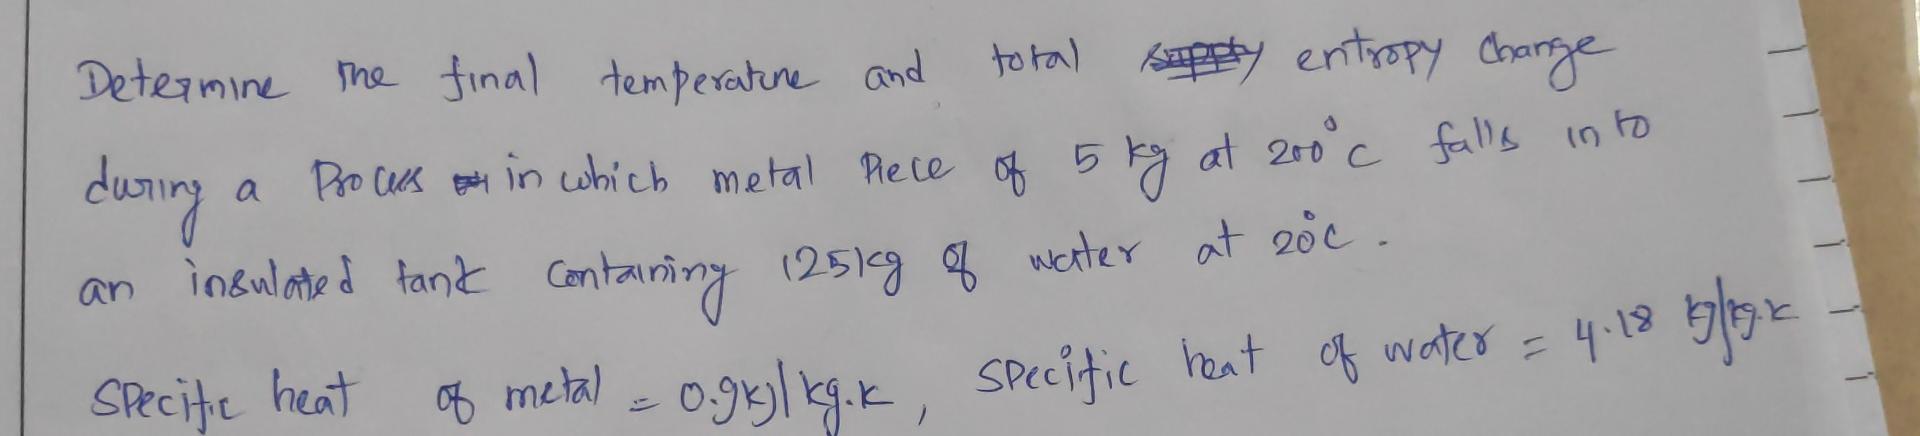 Determine the final temperature and total entropy change
during a Process in which metal Piece of 5 kg at 200°c falls in to
an insulated tank containing 125kg of water at 20°c.
Specific heat of metal = 0.9kJ/kg.k, specific heat of water = 4.18 kg/kg.k